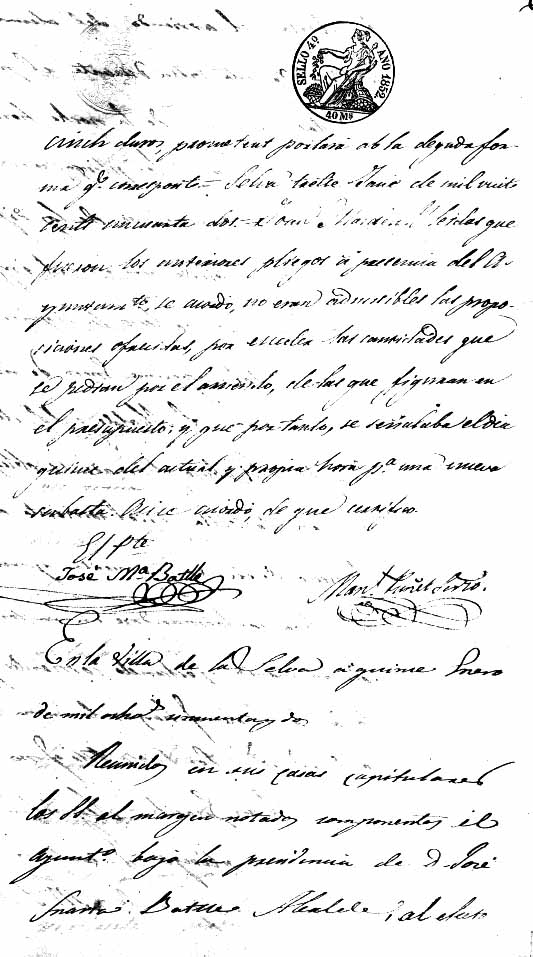 SELLO 4º AÑO 1852.
40 Ms
cinch duros prometent portarà ob la deguda for-
ma qe correspont = Selva Janer de mil vuit
cents cincuanta dos = Joan Leidas que
fueron los anteriores pliegos á presencia del A-
yuntamto, se acordó, no eran admisibles las propo-
siciones ofrecidas, por exceder las cantidades que
se pedian por el arriendo, de las que figuran en
el presupuesto; y que por tanto, se señalaba el dia
quince del actual y propia hora pa una nueva
subasta. Asi se acordó, de que certifico.
El Pte
José Ma Batlle
Manl
En la Villa de la Selva á quince Enero
de mil ochos cincuenta y dos
Reunidos en sus casas capitulares
los SS. al margen notados componentes el
ayunto bajo la presidencia de D. José
Maria Batlle Alcalde, al efecto